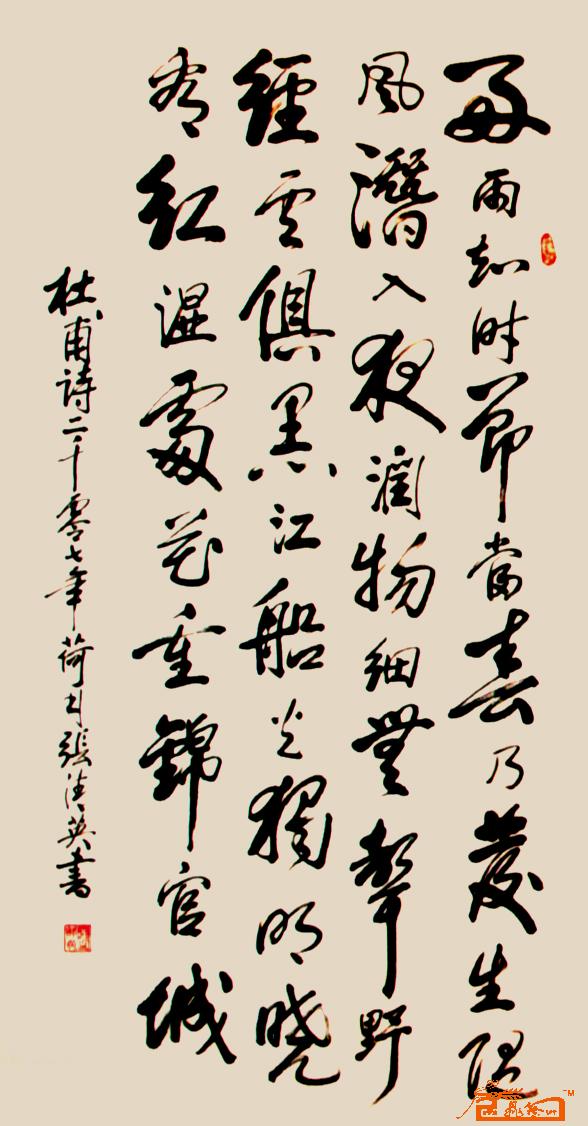 好雨知时節當春乃發生随
風潛入夜潤物細無聲野
經云俱黑江船火獨明曉
看紅湿處花重錦官城
杜甫詩二千零七年荷月張清英書